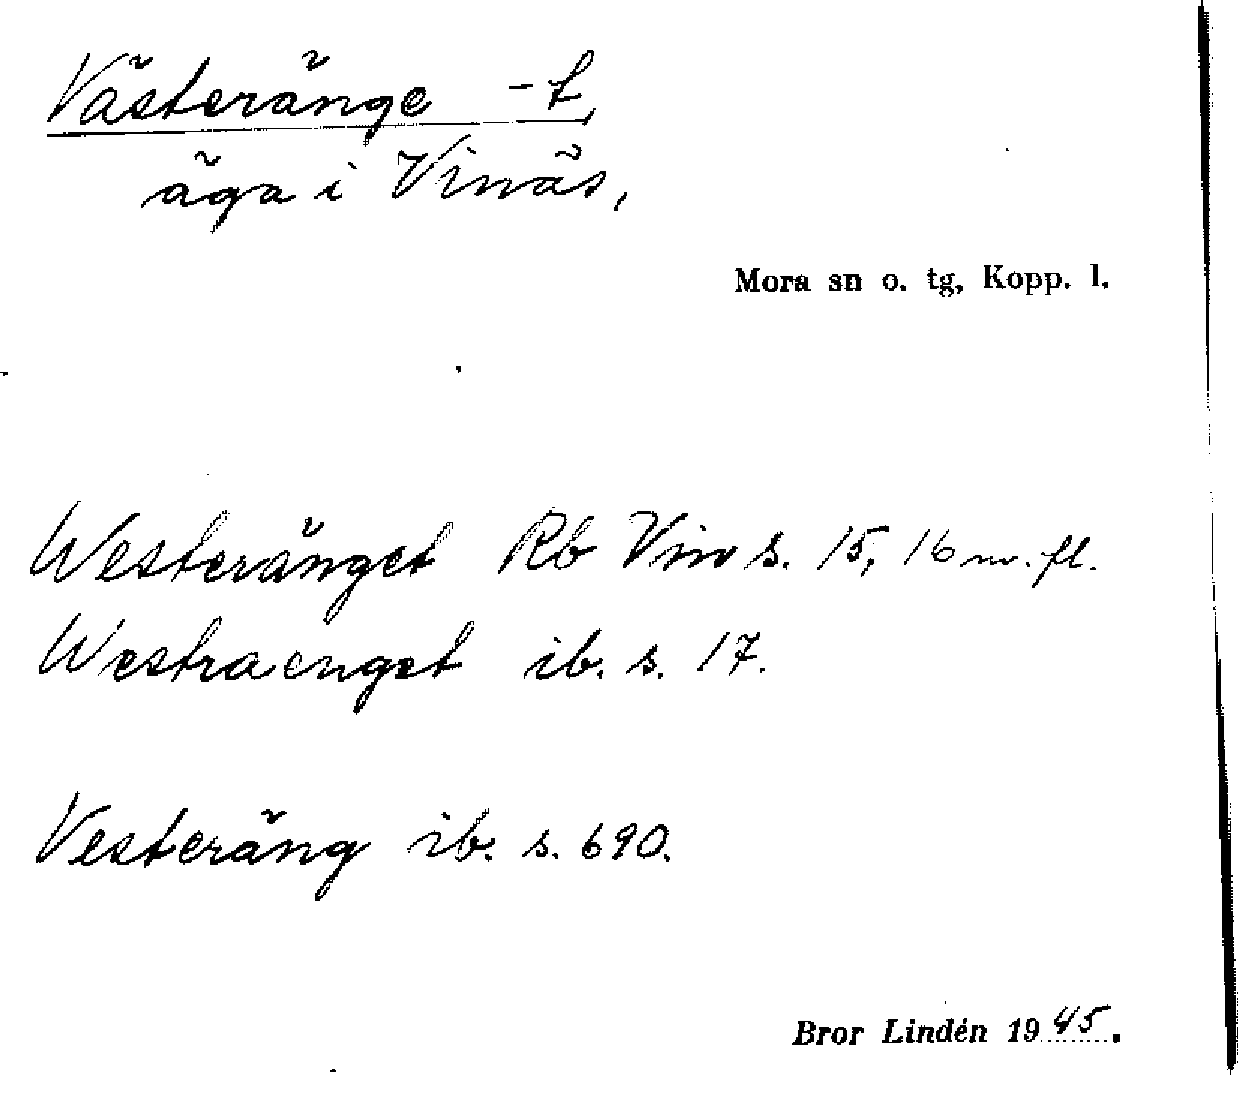 Västeränge -t,
äga i Vinäs,
Mora sn o. tg, Kopp. l.
Westeränget Rb Vin s. 15, 16 m. fl.
Westraenget ib. s. 17.
Vesteräng ib. s. 690.
Bror Lindén 1945.